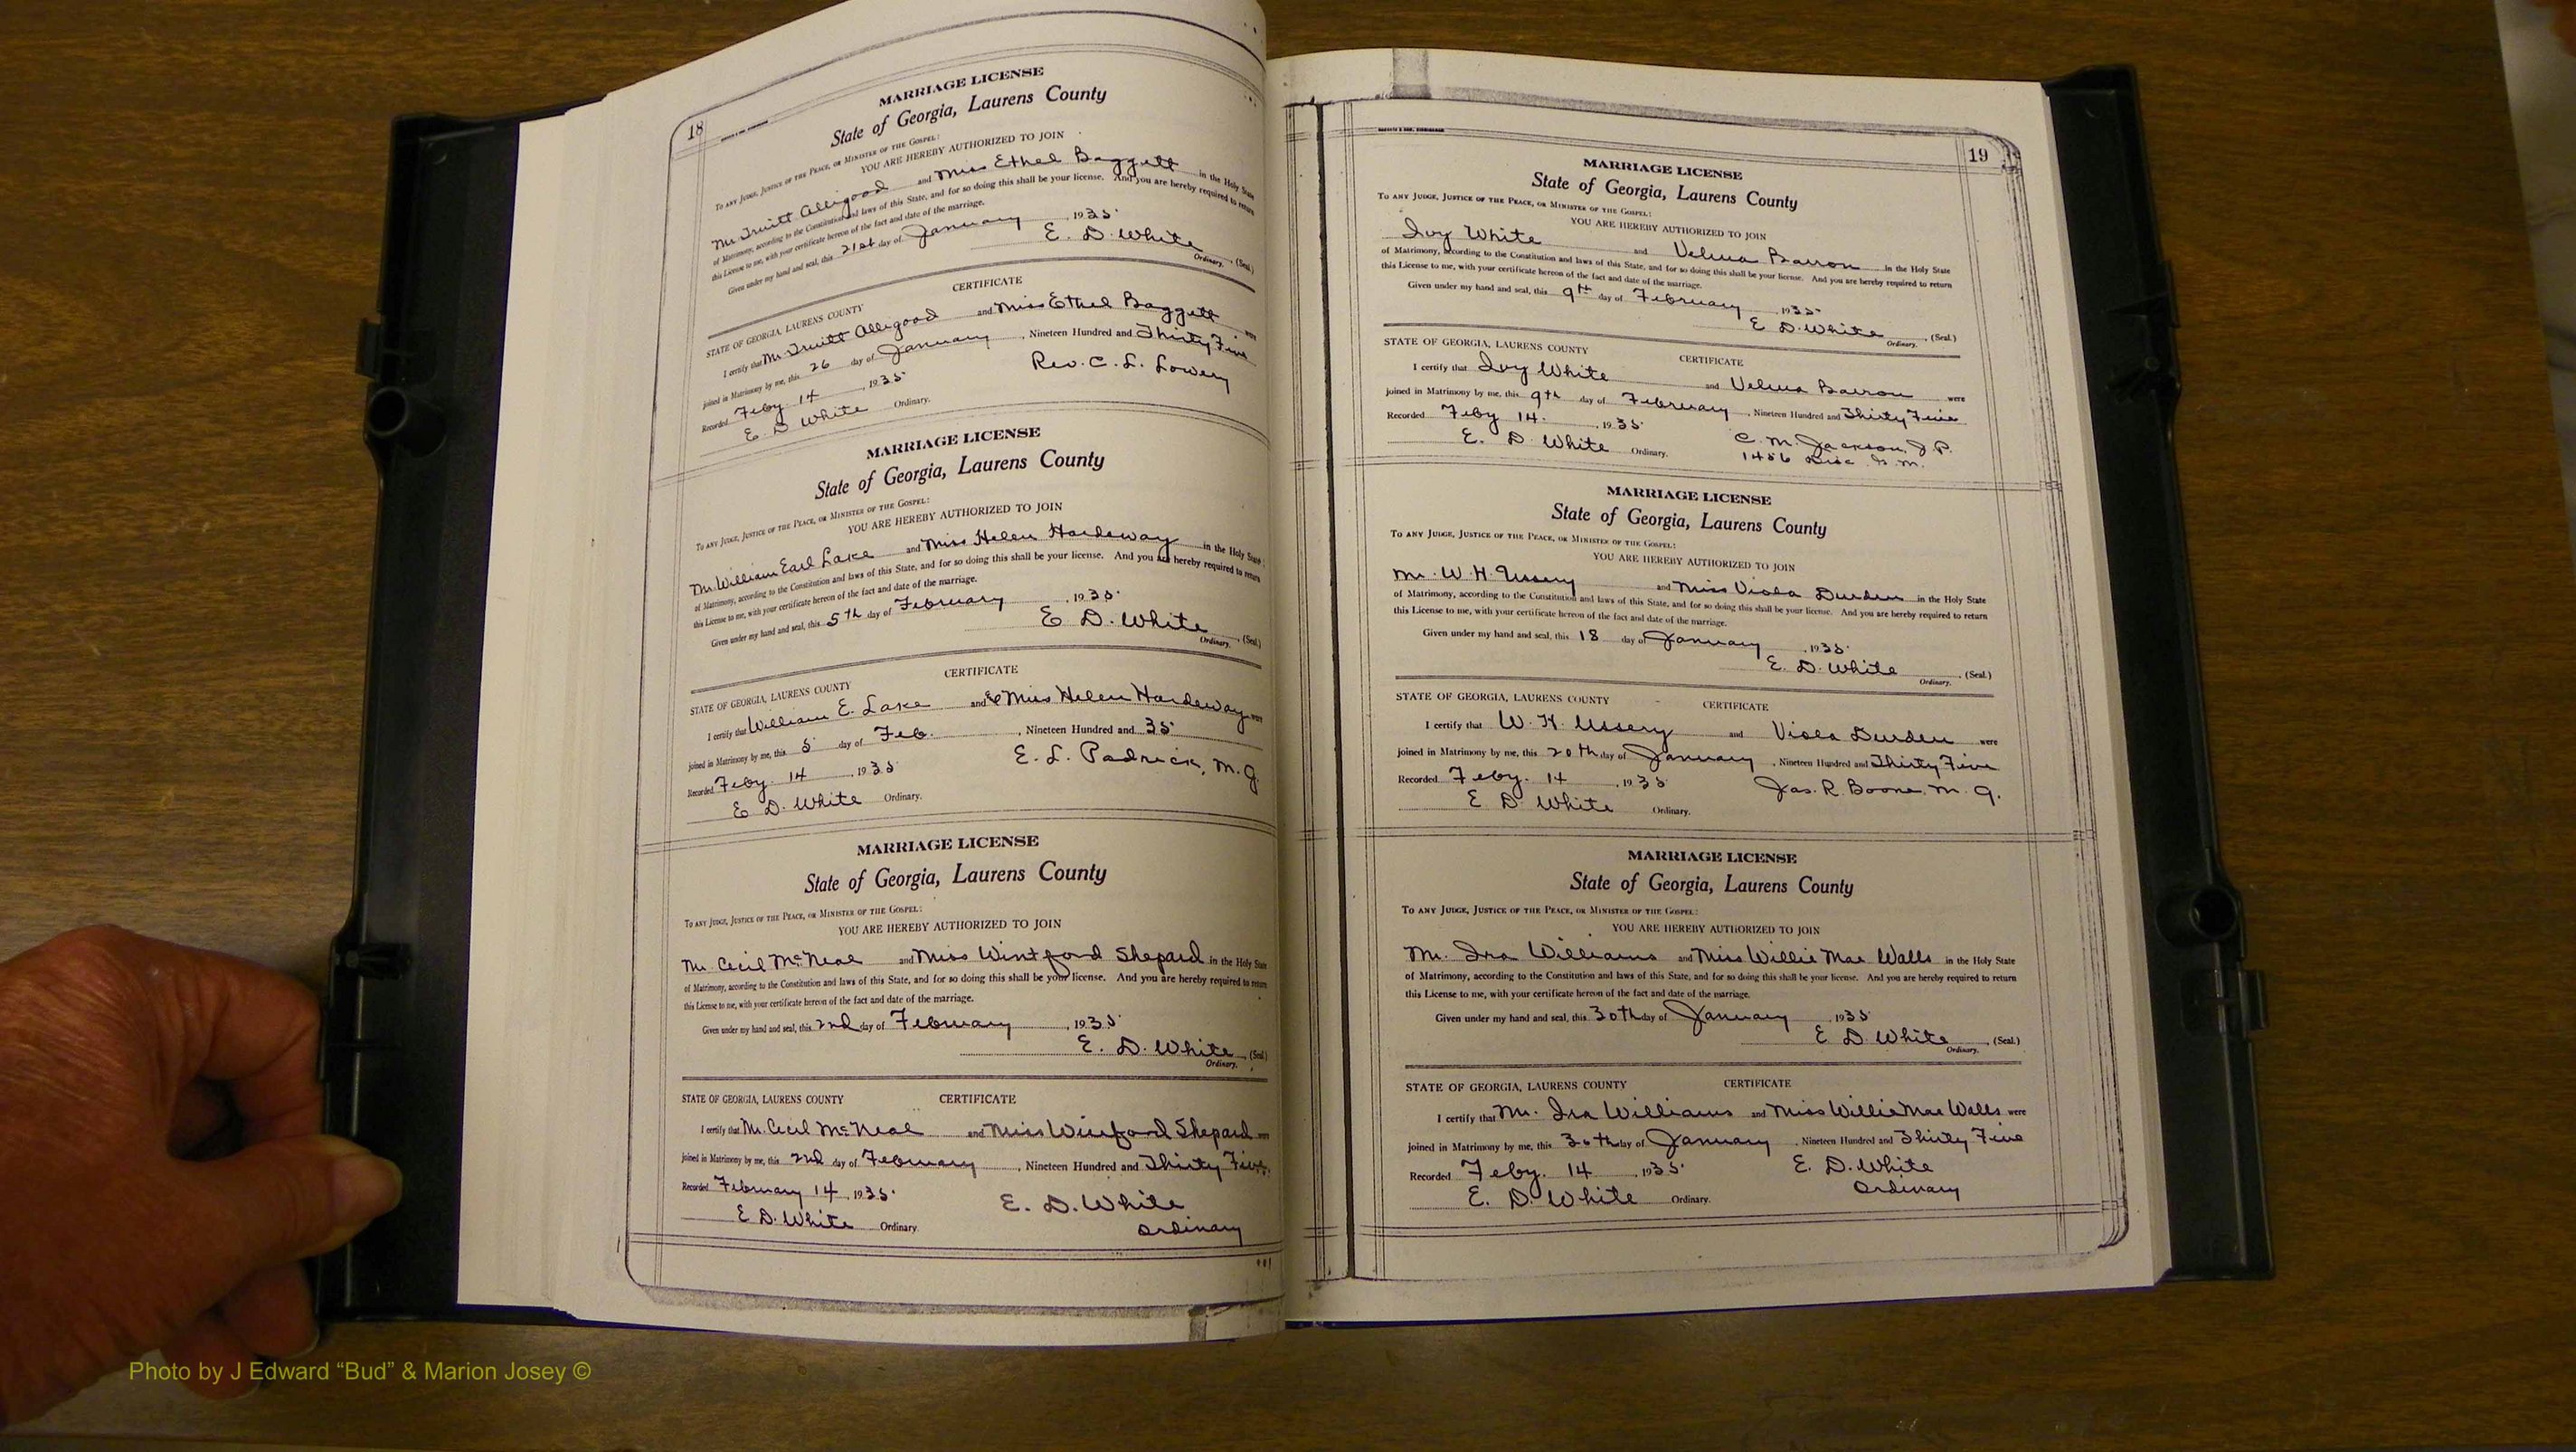 18
MARRIAGE LICENSE
State of Georgia, Laurens County
TO ANY JUDGE, JUSTICE OF THE PEACE, OR MINISTER OF THE GOSPEL:
YOU ARE HEREBY AUTHORIZED TO JOIN
Mr Truitt Alligood and Miss Ethel Baggett in the Holy State
of Matrimony, according to the Constitution and laws of this State, and for so doing this shall be your license. And you are hereby required to return
this License to me, with your certificate hereon of the fact and date of the marriage.
Given under my hand and seal, this 21st day of January, 1935
E. D. White, (Seal)
Ordinary.
CERTIFICATE
STATE OF GEORGIA, LAURENS COUNTY
I certify that Mr Truitt Alligood and Miss Ethel Baggett were
joined in Matrimony by me, this 26 day of January, Nineteen Hundred and Thirty Five
Recorded Feby 14, 1935 Rev. C. L. Lowery
E D White Ordinary.
MARRIAGE LICENSE
State of Georgia, Laurens County
TO ANY JUDGE, JUSTICE OF THE PEACE, OR MINISTER OF THE GOSPEL:
YOU ARE HEREBY AUTHORIZED TO JOIN
Mr. William Earl Lake and Miss Helen Hardeway in the Holy State
of Matrimony, according to the Constitution and laws of this State, and for so doing this shall be your license. And you are hereby required to return
this License to me, with your certificate hereon of the fact and date of the marriage.
Given under my hand and seal, this 5th day of February, 1935
E D. White, (Seal)
Ordinary.
CERTIFICATE
STATE OF GEORGIA, LAURENS COUNTY
I certify that William E. Lake and Miss Helen Hardeway were
joined in Matrimony by me, this 5 day of Feb., Nineteen Hundred and 35
Recorded Feby. 14, 1935 E. L. Padrick, M.G.
E D. White Ordinary.
MARRIAGE LICENSE
State of Georgia, Laurens County
TO ANY JUDGE, JUSTICE OF THE PEACE, OR MINISTER OF THE GOSPEL:
YOU ARE HEREBY AUTHORIZED TO JOIN
Mr. Cecil McNeal and Miss Wintford Shepard in the Holy State
of Matrimony, according to the Constitution and laws of this State, and for so doing this shall be your license. And you are hereby required to return
this License to me, with your certificate hereon of the fact and date of the marriage.
Given under my hand and seal, this 2nd day of February, 1935
E. D. White, (Seal)
Ordinary.
STATE OF GEORGIA, LAURENS COUNTY CERTIFICATE
I certify that Mr. Cecil McNeal and Miss Winford Shepard were
joined in Matrimony by me, this 2nd day of February, Nineteen Hundred and Thirty Five.
Recorded February 14, 1935 E. D. White
E D. White Ordinary. Ordinary
19
MARRIAGE LICENSE
State of Georgia, Laurens County
TO ANY JUDGE, JUSTICE OF THE PEACE, OR MINISTER OF THE GOSPEL:
YOU ARE HEREBY AUTHORIZED TO JOIN
Ivy White and Velma Barron in the Holy State
of Matrimony, according to the Constitution and laws of this State, and for so doing this shall be your license. And you are hereby required to return
this License to me, with your certificate hereon of the fact and date of the marriage.
Given under my hand and seal, this 9th day of February, 1935
E D. White, (Seal.)
Ordinary.
STATE OF GEORGIA, LAURENS COUNTY CERTIFICATE
I certify that Ivy White and Velma Barron were
joined in Matrimony by me, this 9th day of February, Nineteen Hundred and Thirty Five
Recorded Feby 14. 1935 C. M. Jackson, J.P.
E. D White Ordinary. 1456 Disc. G. M.
MARRIAGE LICENSE
State of Georgia, Laurens County
TO ANY JUDGE, JUSTICE OF THE PEACE, OR MINISTER OF THE GOSPEL:
YOU ARE HEREBY AUTHORIZED TO JOIN
Mr. W. H. Ussery and Miss Viola Durden in the Holy State
of Matrimony, according to the Constitution and laws of this State, and for so doing this shall be your license. And you are hereby required to return
this License to me, with your certificate hereon of the fact and date of the marriage.
Given under my hand and seal, this 18 day of January, 1935
E. D. White, (Seal.)
Ordinary.
STATE OF GEORGIA, LAURENS COUNTY CERTIFICATE
I certify that W. H. Ussery and Viola Durden were
joined in Matrimony by me, this 20th day of January, Nineteen Hundred and Thirty Five
Recorded Feby. 14, 1935 Jas. R. Boone, M. G.
E D. White Ordinary.
MARRIAGE LICENSE
State of Georgia, Laurens County
TO ANY JUDGE, JUSTICE OF THE PEACE, OR MINISTER OF THE GOSPEL:
YOU ARE HEREBY AUTHORIZED TO JOIN
Mr. Ira Williams and Miss Willie Mae Walls in the Holy State
of Matrimony, according to the Constitution and laws of this State, and for so doing this shall be your license. And you are hereby required to return
this License to me, with your certificate hereon of the fact and date of the marriage.
Given under my hand and seal, this 30th day of January, 1935
E D. White, (Seal.)
Ordinary.
STATE OF GEORGIA, LAURENS COUNTY CERTIFICATE
I certify that Mr. Ira Williams and Miss Willie Mae Walls were
joined in Matrimony by me, this 30th day of January, Nineteen Hundred and Thirty Five
Recorded Feby. 14, 1935 E. D. White
E. D. White Ordinary. Ordinary
Photo by J Edward “Bud” & Marion Josey ©